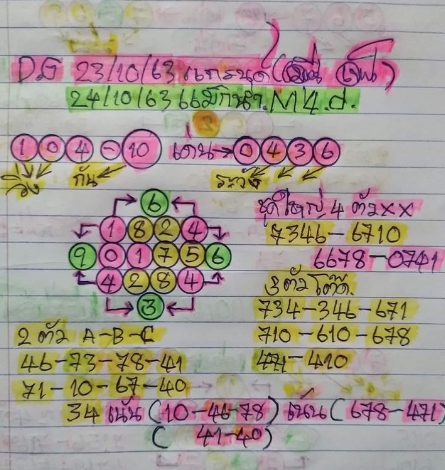 23/10/63
24/10/63 M4.d.
1 0 4 - 10 เด่น → 0 4 3 6
วิ่ง กัน ระวัง
6
1 8 2 4
9 0 1 7 5 6
4 2 8 4
3
ชุดใหญ่ 4 ตัว xx
7346-6710
6678-0741
3 ตัว โต๊ด
734-346-671
710-610-678
471-410
2 ตัว A-B-C
46-73-78-41
71-10-67-40
34 เน้น (10-46-78) เน้น (678-471)
(41-40)